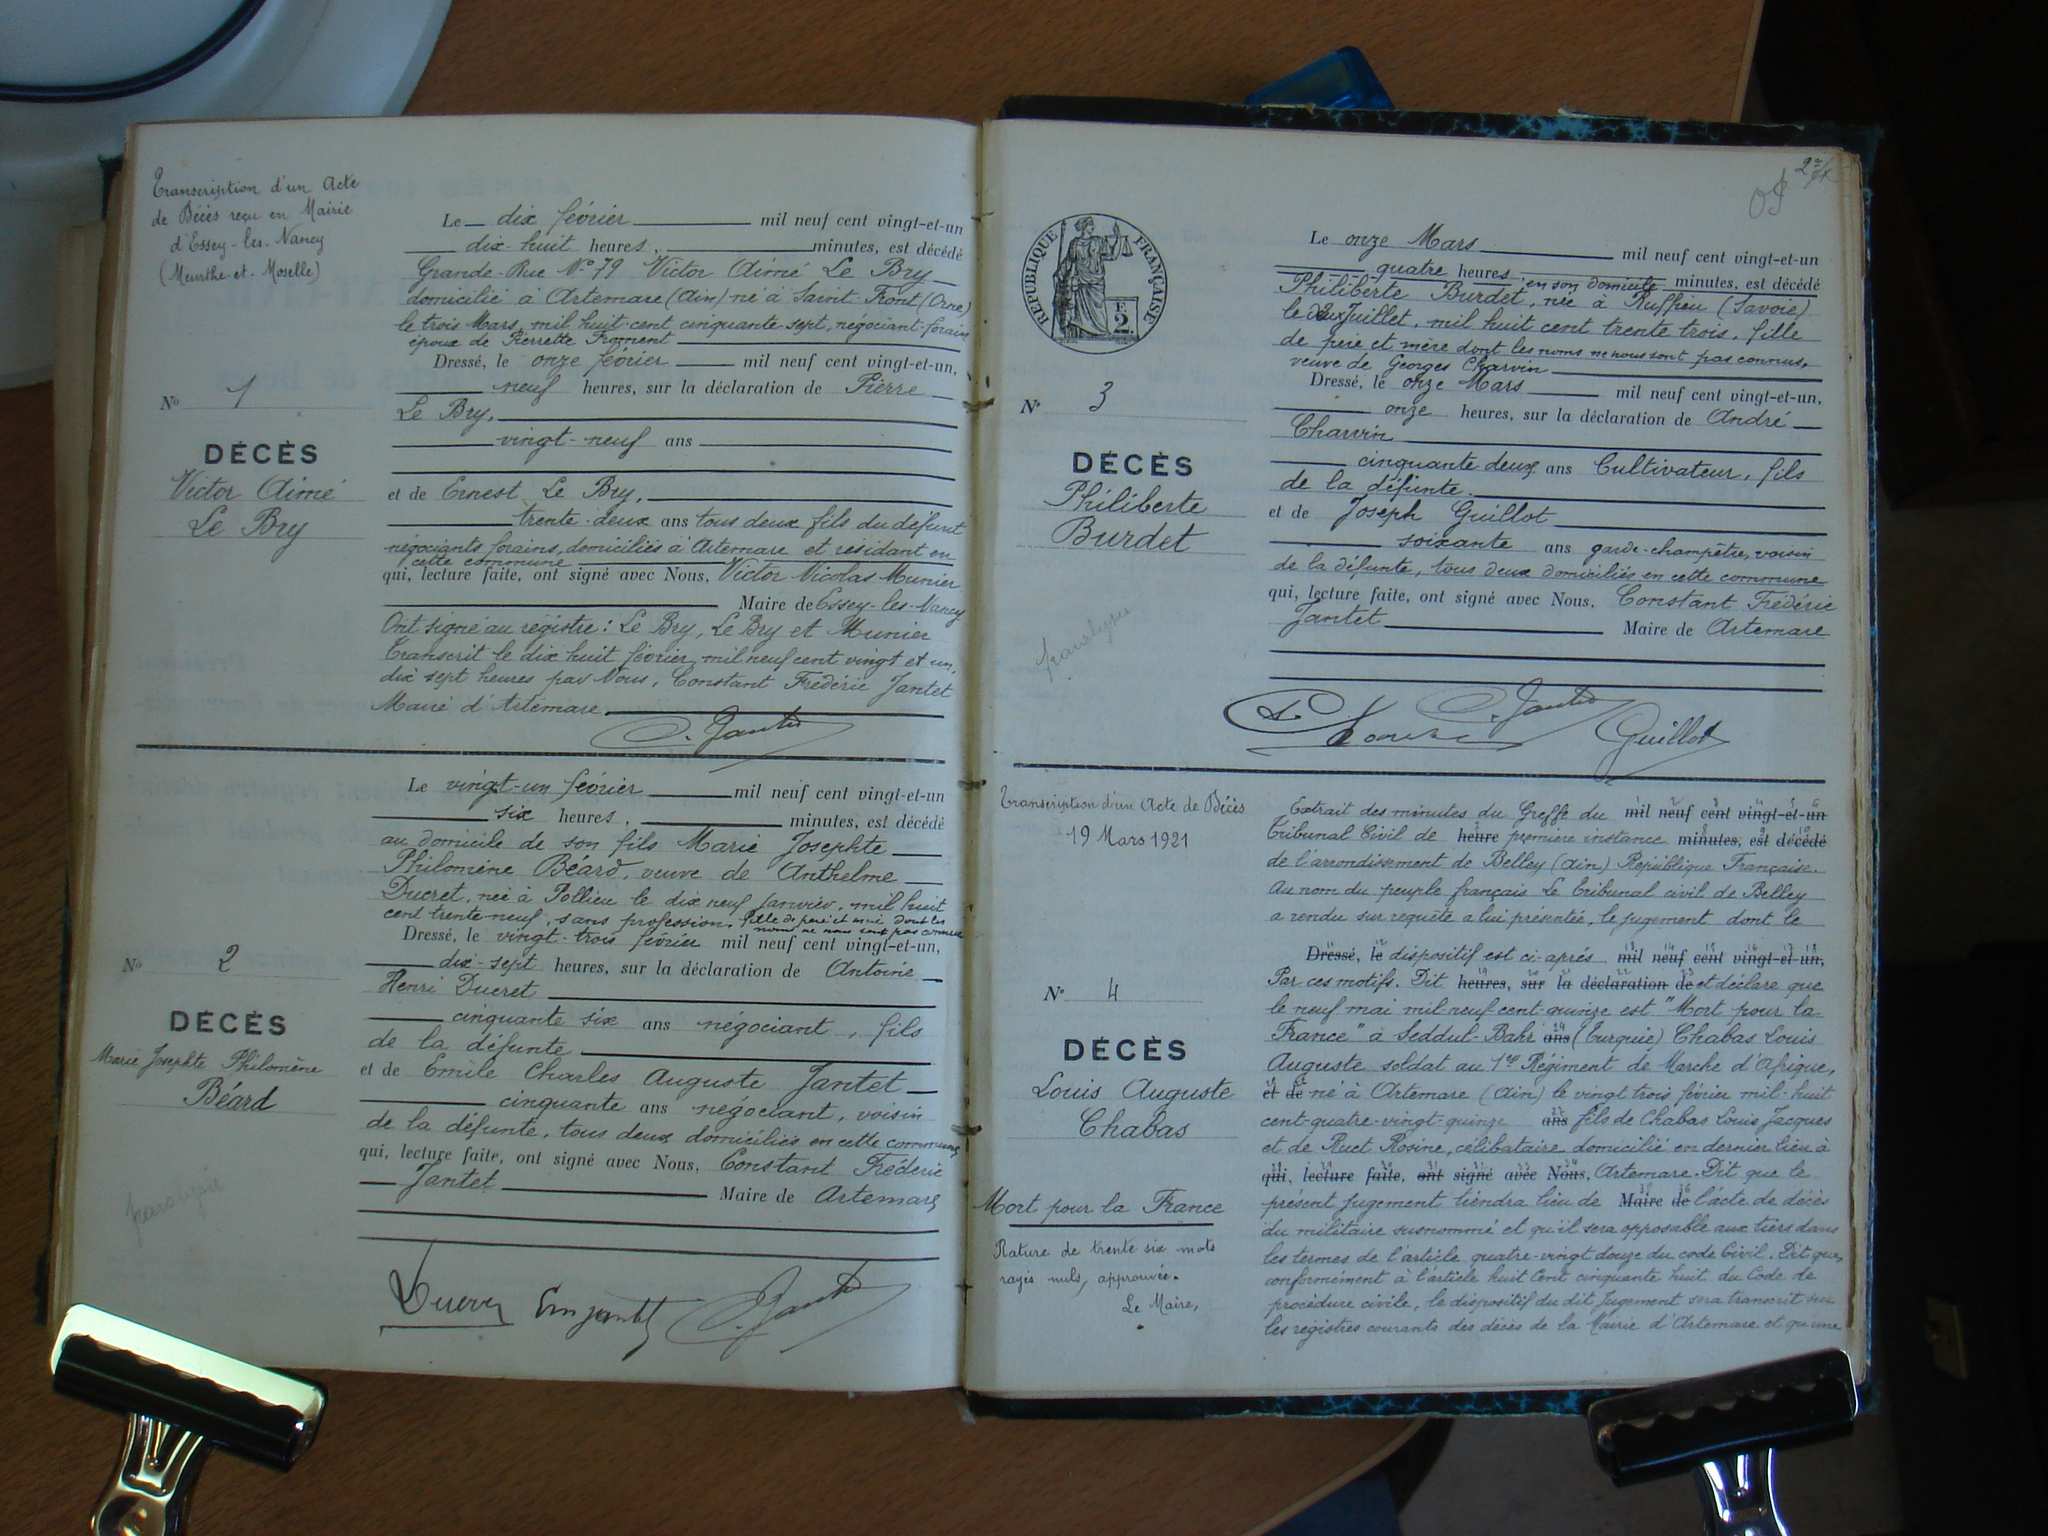 Transcription d'un Acte
de Décès reçu en Mairie
d'Essey-les-Nancy
(Meurthe-et-Moselle)
Le dix février mil neuf cent vingt-et-un
dix-huit heures, minutes, est décédé
Grande-Rue N° 79 Victor Aimé Le Bry
domicilié à Artemare (Ain) né à Saint-Front (Orne)
le trois Mars, mil huit-cent cinquante-sept, négociant-forain
époux de Pierrette Froment
Dressé, le onze février mil neuf cent vingt-et-un,
neuf heures, sur la déclaration de Pierre
Le Bry,
vingt-neuf ans
et de Ernest Le Bry,
trente-deux ans tous deux fils du défunt
négociants forains, domiciliés à Artemare et résidant en
cette commune
qui, lecture faite, ont signé avec Nous, Victor Nicolas Munier
Maire de Essey-les-Nancy
Ont signé au registre : Le Bry, Le Bry et Munier
Transcrit le dix huit février mil neuf cent vingt et un,
dix sept heures par Nous, Constant Frédéric Jantet
Maire d'Artemare
C. Jantet
N° 1
DÉCÈS
Victor Aimé
Le Bry
Le vingt-un février mil neuf cent vingt-et-un
six heures, minutes, est décédé
au domicile de son fils Marie Josephte
Philomène Béard, veuve de Anthelme
Ducret, née à Pollieu le dix neuf Janvier, mil huit
cent trente-neuf, sans profession, fille de père et mère dont les
noms ne nous sont pas connus
Dressé, le vingt-trois février mil neuf cent vingt-et-un,
dix-sept heures, sur la déclaration de Antoine
Henri Ducret
cinquante six ans négociant, fils
de la défunte
et de Emile Charles Auguste Jantet
cinquante ans négociant, voisin
de la défunte, tous deux domiciliés en cette commune
qui, lecture faite, ont signé avec Nous, Constant Frédéric
Jantet Maire de Artemare
Ducret Em Jantet C. Jantet
N° 2
DÉCÈS
Marie Josephte Philomène
Béard
paralysie
2
Le onze Mars mil neuf cent vingt-et-un
quatre heures, en son domicile minutes, est décédé
Philiberte Burdet, née à Ruffieu (Savoie)
le deux Juillet, mil huit cent trente trois, fille
de père et mère dont les noms ne nous sont pas connus,
veuve de Georges Charvin
Dressé, le onze Mars mil neuf cent vingt-et-un,
onze heures, sur la déclaration de André
Charvin
cinquante deux ans Cultivateur, fils
de la défunte.
et de Joseph Guillot
soixante ans garde-champêtre, voisin
de la défunte, tous deux domiciliés en cette commune
qui, lecture faite, ont signé avec Nous, Constant Frédéric
Jantet Maire de Artemare
C. Jantet
Guillot
RÉPUBLIQUE FRANÇAISE
2
N° 3
DÉCÈS
Philiberte
Burdet
paralysie
Transcription d'un Acte de Décès
19 Mars 1921
N° 4
DÉCÈS
Louis Auguste
Chabas
Mort pour la France
Rature de trente six mots
rayés nuls, approuvée.
Le Maire,
Extrait des minutes du Greffe du mil neuf cent vingt-et-un
Tribunal Civil de heure première instance minutes, est décédé
de l'arrondissement de Belley (Ain) République Française.
Au nom du peuple français Le Tribunal civil de Belley
a rendu sur requête a lui présentée, le jugement dont le
Dressé, le dispositif est ci-après mil neuf cent vingt-et-un,
Par ces motifs. Dit heures, sur la déclaration de et déclare que
le neuf mai mil neuf cent-quinze est "Mort pour la
France" à Seddul-Bahr ans (Turquie) Chabas Louis
Auguste soldat au 1er Régiment de Marche d'Afrique,
et de né à Artemare (Ain) le vingt trois février mil-huit
cent-quatre-vingt-quinze ans fils de Chabas Louis Jacques
et de Ruet Rosine, célibataire domicilié en dernier lieu à
qui, lecture faite, ont signé avec Nous, Artemare. Dit que le
présent jugement tiendra lieu de Maire de l'acte de décès
du militaire susnommé et qu'il sera opposable aux tiers dans
les termes de l'article quatre-vingt douze du code Civil. Dit que,
conformément à l'article huit Cent cinquante huit du Code de
procédure civile, le dispositif du dit Jugement sera transcrit sur
les registres courants des décès de la Mairie d'Artemare et qu'une